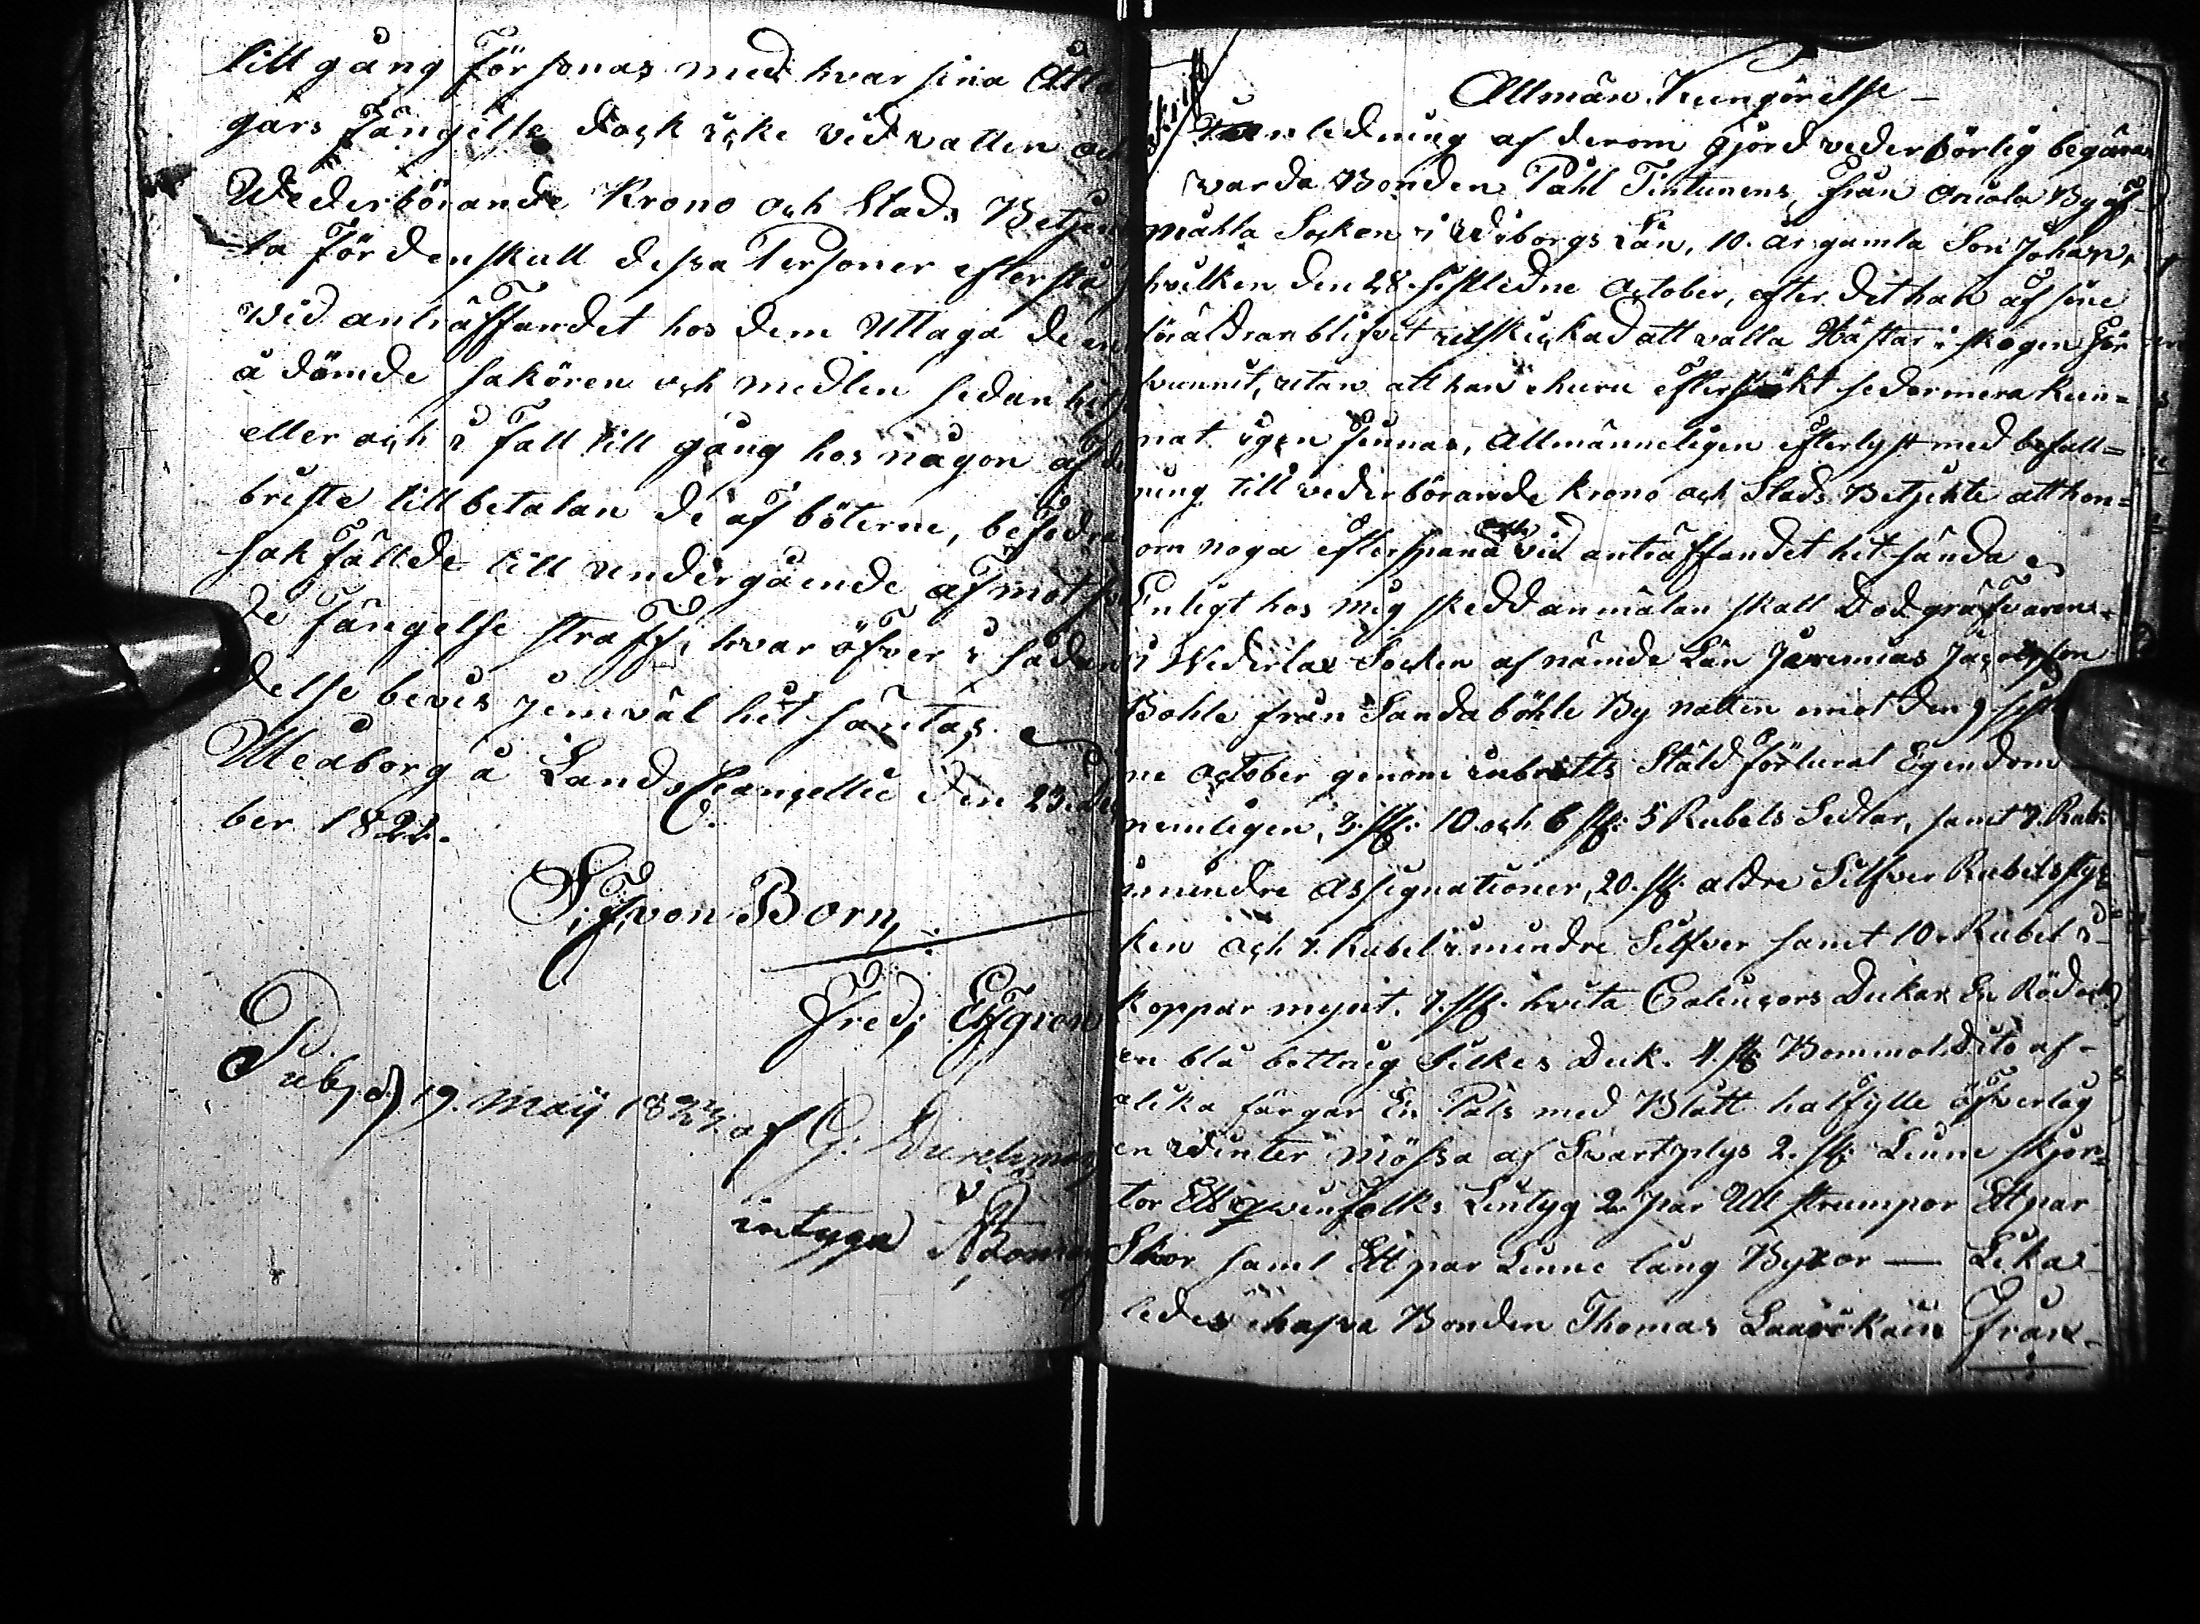 till gång försonas med hvar sina åtta
gars Fängelse dock icke vid vatten och
Wederbörande Krono och Stads Betjen
ta för denskull dessa Personer efterspa
wid anträffandet hos dem uttaga de en
ådömde sakören och medlen sedan hit
eller och i fall till gång hos någon af de
briste till betalan de af böterne, befodra
sak fällde till undergående af mot sva
de fängelse straff, hvar öfver i sådan
delse bevis jemväl hit sändas.
Uleåborg å Lands Cancellie den 23 de
ber 1822.
S. F. von Born
Fred: Elfgren
Publ. d. 19. Maij 1823 af G. Durchman
intyga
Afskrift
Allmän Kungörelse
I anledning af derom gjord vederbörlig begäran
warda Bonden Påhl Tintunens, från Aniala By af
mähla Socken i Wiborgs Län, 10. år gamla Son Johan,
hvilken den 28. sistledne October, efter det han af sine
föräldrar blifvit utskickad att valla Hästar i skogen för
svunnit, utan att han ehuru eftersökt sedermera kun=
nat igen finnas, Allmänneligen efterlyst med befall=
ning till vederbörande krono och Stads Betjente att hon=
om noga efterspana och vid anträffandet hit sända
Enligt hos mig skedd anmälan skall Dödgräfvaren
i Wederlax Socken af nämde Län Jeremias Jacobsson
Bohle från Sandaböhle By natten emot den 9 sistl
ne October genom inbrotts Stöld förlurat Egendom
nemligen, 3. st: 10. och 6 st: 5 Rubels Sedlar, samt 7. Rub:
i mindre Assignationer, 20. st. äldre Silfver Rubelsstyc
ken och 7. Rubel i mindre Silfver samt 10. Rubel i
koppar mynt. 7. st. hvita Calincors Dukar En Röd och
en blå bottnig Silkes Duk. 4. st: Bommols dito af
olika färgar En Päls med Blått halfylle öfvertag
en Winter Mössa af Svart plys 2. st: Linne skjor=
tor Ett qvinfolks Lintyg 2. par Ull strumpor Ett par
Skor samt Ett par Linne lång Byxor — Lika
ledes hafva Bonden Thomas från